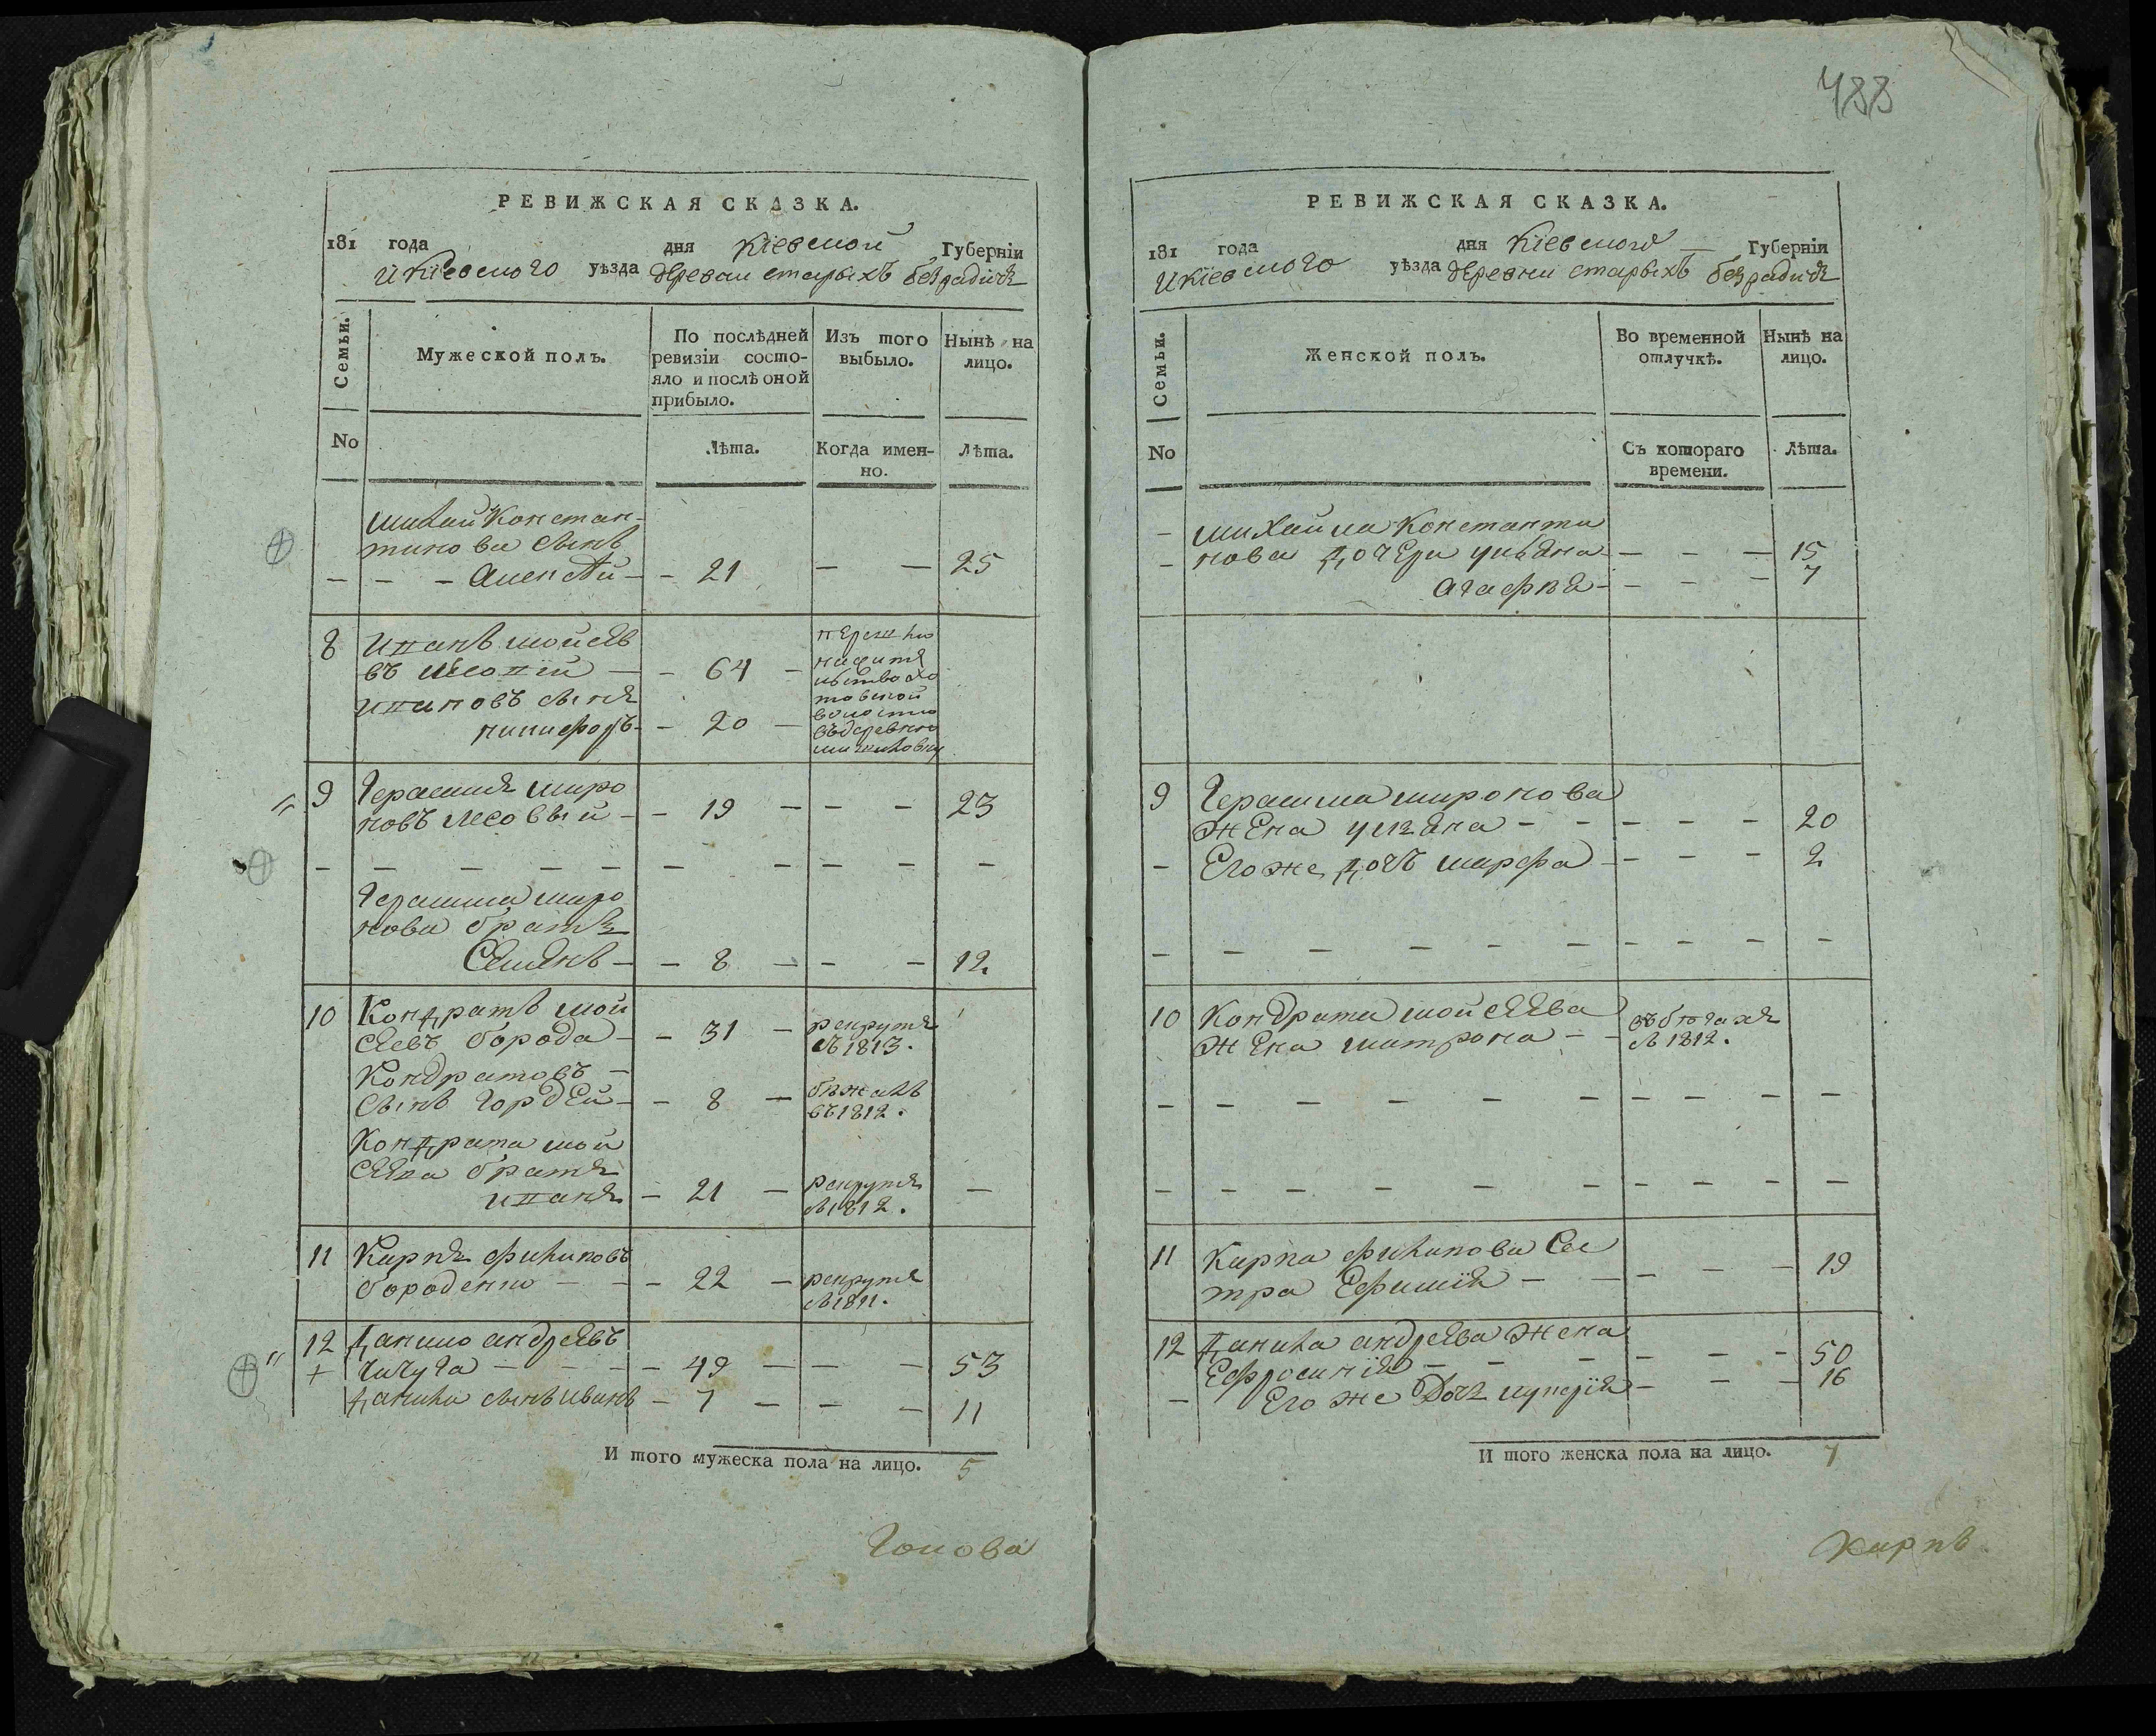 488
РЕВИЖСКАЯ СКАЗКА.
181 года дня Кіевской Губерніи
И Кіевского уѣзда деревни старыхъ безрадичь
Семьи.
Мужеской полъ.
По послѣдней ревизіи состо-
яло и послѣ оной прибыло.
Изъ того выбыло.
Нынѣ на лицо.
No
Лѣта.
Когда имен-
но.
Лѣта.
михайла Констан-
тинова сынъ
— — — Алексѣй — — 21 — — 25
8 Иванъ мойсѣе
въ — — 64 —
Ивановъ сынъ
никифоръ — — 20 —
въ деревню
9 Герасимъ миро
новъ лесовый — — 19 — — — 23
— — — — — — — — — —
Герасима миро
нова братъ
Семенъ — — 8 — — — 12
10 Кондратъ мой
сеевъ борода — — 31 — рекрутъ
в 1813.
Кондратовъ —
сынъ гордей — — 8 — бѣжалъ
въ 1812.
Кондрата мой
сеева братъ
иванъ — 21 — рекрутъ —
в 1812.
11 Карпъ филиповъ
бороденко — — — 22 — рекрутъ
в 1811.
12 Данило андреевъ
+ чичуга — — — — 49 — — — 53
Данила сынъ иванъ — 7 — — — 11
И того мужеска пола на лицо. 5
Голова
РЕВИЖСКАЯ СКАЗКА.
181 года дня Кіевской — Губерніи
И Кіевского уѣзда деревни старыхъ безрадичь
Семьи.
Женской полъ.
Во временной отлучкѣ.
Нынѣ на лицо.
No
Съ котораго времени.
Лѣта.
— михайла Константи
— нова дочери ульяна — — — 15
агафія — — — — 7
9 Герасима миронова
жена ульяна — — — — — 20
— Его же дочь марфа — — — 2
— — — — — — — — — —
10 Кондрата мойсеева въ бѣгахъ
жена матрона — — в 1812.
— — — — — — — — — —
— — — — — — — — — —
11 Карпа филипова сес
тра Ефимія — — — — — 19
12 Данила андреева жена
Ефросинія — — — — — — 50
— Его же дочь лукерія — — — 16
И того женска пола на лицо. 7
Карпъ